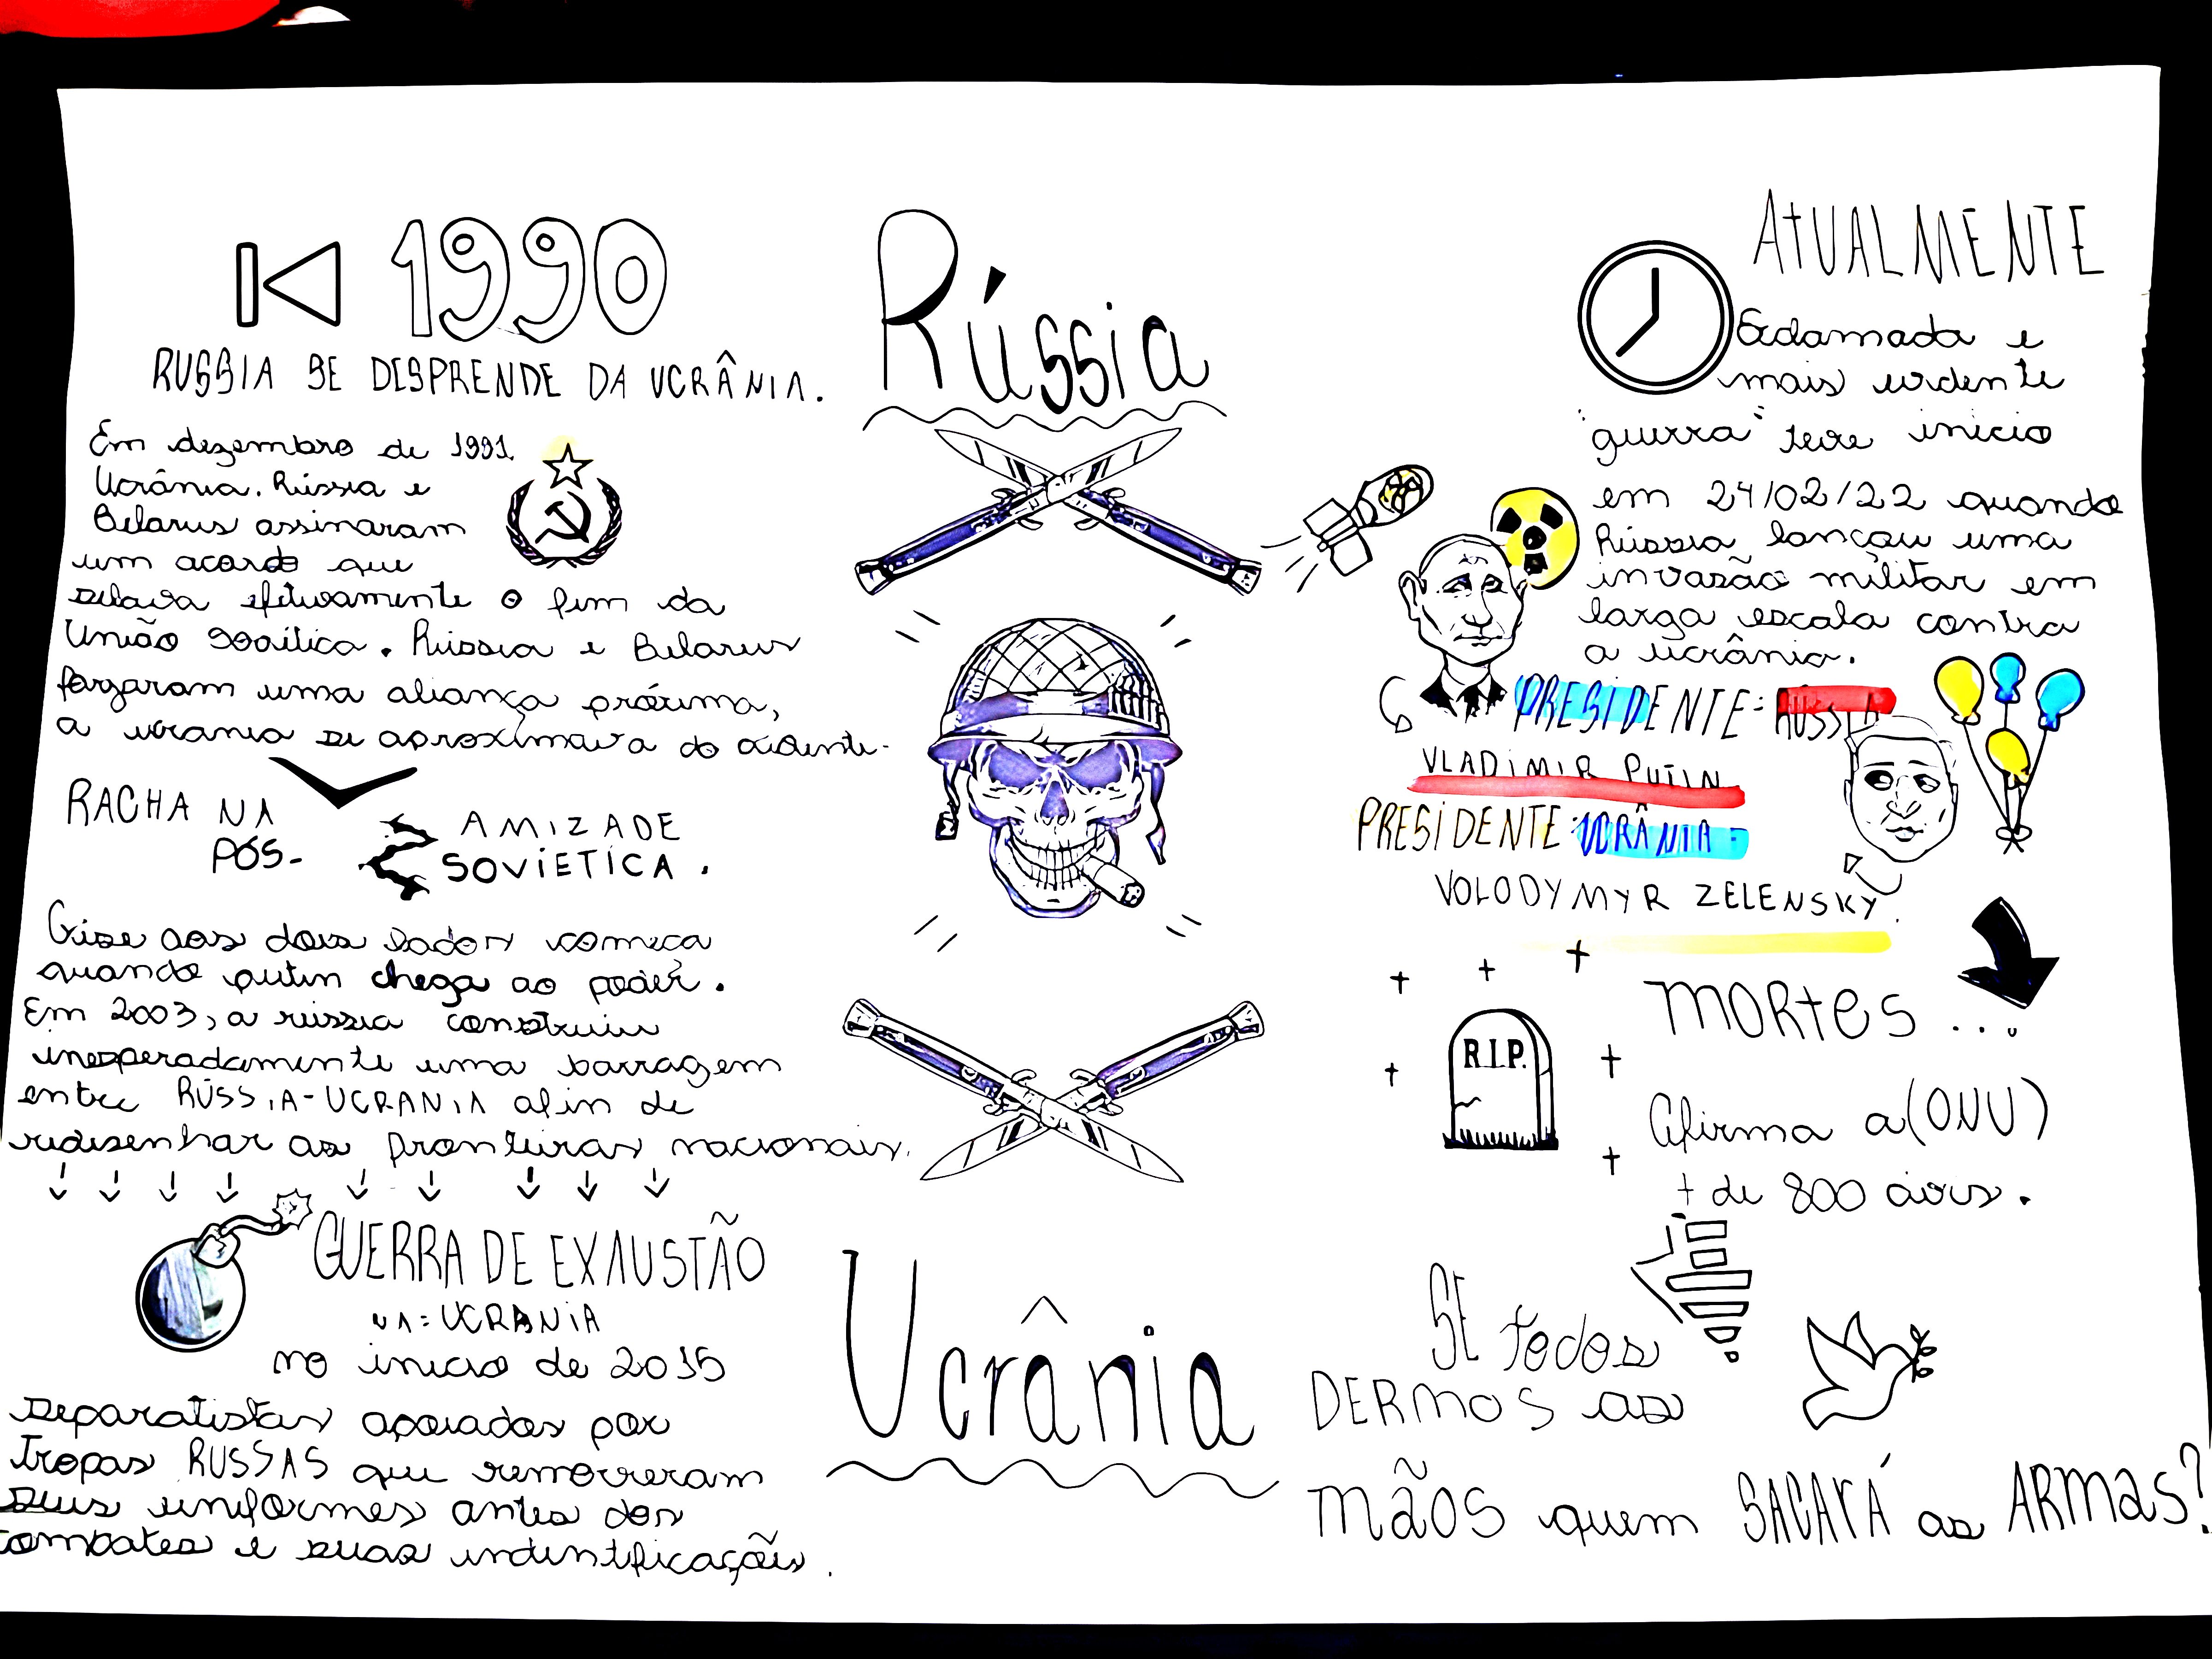 1990
RUSSIA SE DESPRENDE DA UCRÂNIA.
Em dezembro de 1991,
Ucrânia. Rússia e
Belarus assinaram
um acordo que
selava efetivamente o fim da
União Soviética. Rússia e Belarus
forjaram uma aliança próxima,
a ucrania se aproximava do ocidente.
RACHA NA
PÓS-
AMIZADE
SOVIETICA.
Crise aos dois lados começa
quando putin chega ao poder.
Em 2003, a rússia construiu
inesperadamente uma barragem
entre RÚSSIA-UCRANIA afin de
redisenhar as fronteiras nacionais.
GUERRA DE EXAUSTÃO
NA = UCRANIA
no inicio de 2015
separatistas apoiados por
tropas RUSSAS que removeram
seus uniformes antes dos
combates e suas indentificações.
Rússia
Ucrânia
ATUALMENTE
e
mais
"guerra" teve inicio
em 24/02/22 quando
Rússia lançou uma
invasão militar em
larga escala contra
a ucrânia.
PRESIDENTE: RÚSSIA
VLADIMIR PUTIN
PRESIDENTE: UCRÂNIA
VOLODYMYR ZELENSKY.
MORtes...
R.I.P.
Afirma a (ONU)
+ de 800 civis.
SE todos
DERMOS as
MÃOS quem SACARÁ as ARMAS?